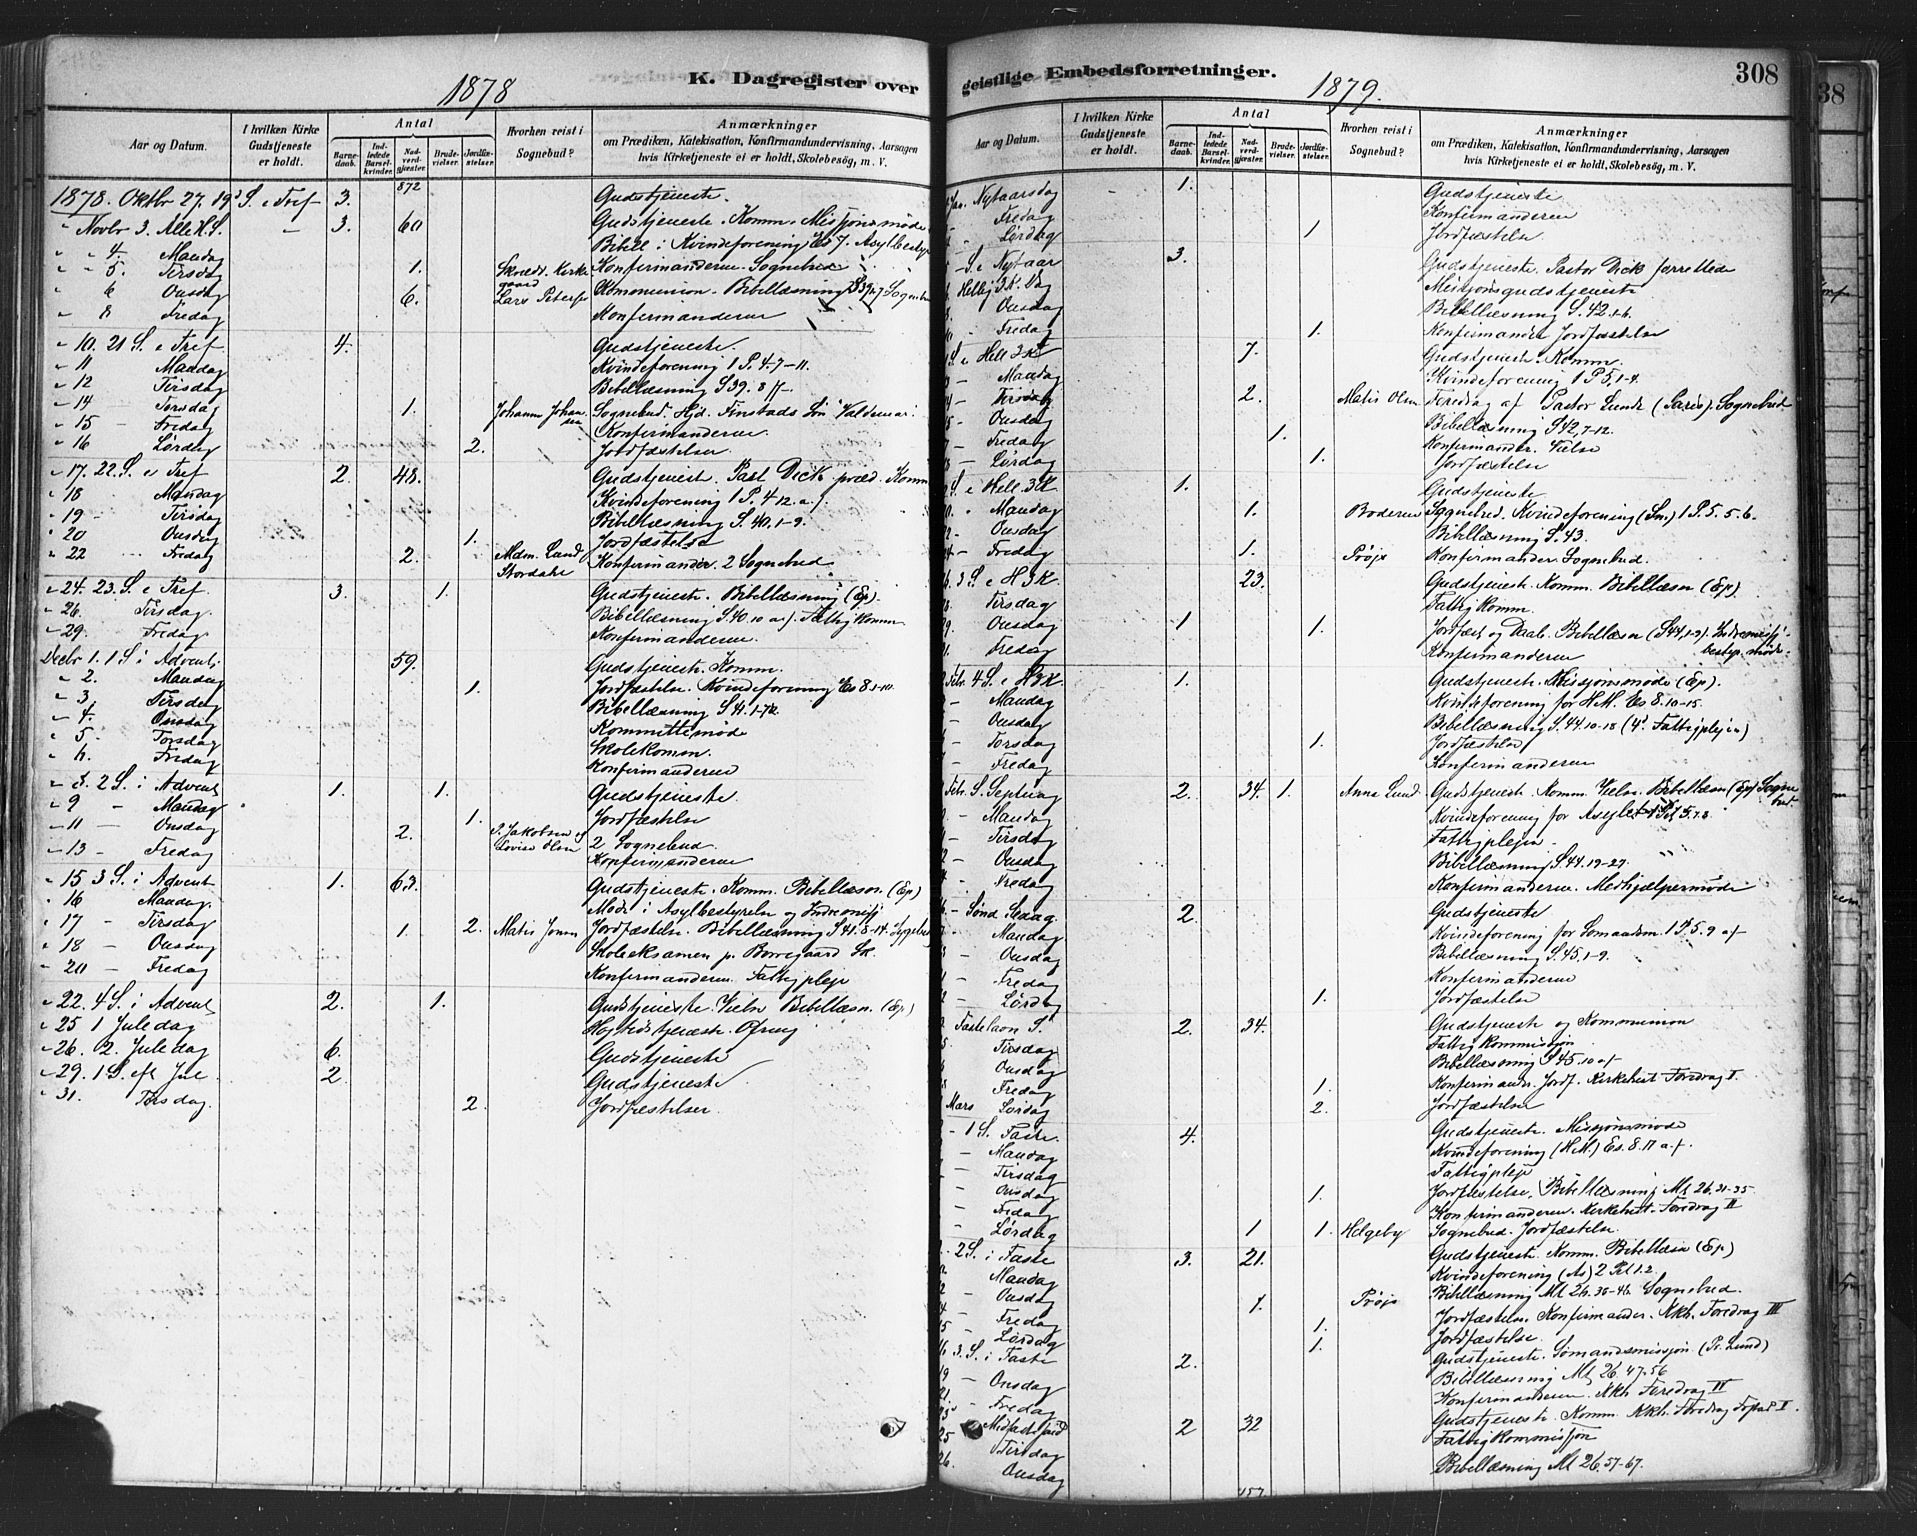 1878
K. Dagregister over
Aar og Datum. I hvilken Kirke Gudstjeneste er holdt. Antal Barnedaab. Indledede Barselkvinder. Nadverdgjæster Brudevielser. Jordfæstelser Hvorhen reist i Sognebud? Anmærkninger om Prædiken, Katekisation, Konfirmandundervisning, Aarsagen hvis Kirketjeneste ei er holdt, Skolebesøg, m. V.
872
1878. Oktbr 27. 19 S. e Tref 3. Gudstjeneste.
" Novbr 3. Alle H. S. – 3. 60 Gudstjeneste. Komm. Missjonsmøde
" " 4. Mandag Bibell i Kvindeforening Es 7. Asylbestyr
" " 5. Tirsdag 1. Kirkegaard Konfirmanderne. Sognebud
" 6 Onsdag 6. Lars Peters Kommunion. Bibellæsning
" 8 Fredag Konfirmanderne
" 10. 21 S. e Tref 4. Gudstjeneste.
" 11 Mandag Kvindeforening 1 P. 4. 7–11.
" 12 Tirsdag Bibellæsning S 39. 8 ff
" 14 Torsdag 1. Johanne Johansen Sognebud. Hjd. Finstads Søn Valdemar.
" 15 – Fredag Konfirmanderne.
" 16 Lørdag 2. Jordfæstelser
" 17. 22. S. e Tref 2. 48. Gudstjeneste. Past Dick præd. Komm
" 18 Mandag Kvindeforening 1 P. 4 12 a f
" 19 – Tirsdag Bibellæsning S. 40. 1–9.
" 20 Onsdag 1. Jordfæstelse
" 22 Fredag 2. Mdm. Lund Stordahl Konfirmander. 2 Sognebud
" 24. 23. S. e Tref. 3. 1. Gudstjeneste. Bibellæsning (Ep).
" 26. Tirsdag. Bibellæsning S. 40. 10 a f. Fattigkomm
" 29. Fredag. Konfirmanderne.
Decbr 1. 1 S. i Advent. 59. Gudstjeneste. Komm.
" 2. Mandag 1. Jordfæstelse. Kvindeforening Es 8. 1–10.
" 3 Tirsdag Bibellæsning S 41. 1–7
" 4. Onsdag Kommittemøde
" 5. Torsdag Skolekomm.
" 6. Fredag Konfirmanderne
2 S. i Advent 1. 1. Gudstjeneste.
" 9 – Mandag 1. Jordfæstelse
" 11 – Onsdag 2. P. Jakobsen og Lovise Olsen 2 Sognebud.
" 13 – Fredag Konfirmanderne
" 15 3 S. i Advent 1. 63. Gudstjeneste. Komm. Bibellæsn. (Ep)
" 16 Mandag. Møde i Asylbestyrelse og Indremisj
" 17 – Tirsdag 1. 2. Matis Jensen Jordfæstelse. Bibellæsning S 41. 8–14.
" 18 – Onsdag Skoleeksamen p. Borregaard Sk.
" 20 – Fredag Konfirmanderne. Fattigpleje
" 22. 4 S. i Advent 2. 1. Gudstjeneste. Vielse Bibellæsn. (Ep.)
" 25 1 Juledag Højtidstjeneste. Ofring
" 26. 2. Juledag 6. Gudstjeneste
" 29. 1 S. eft Jul 2. Gudstjeneste
" 31. Tirsdag. 2. Jordfæstelser.
geistlige Embedsforretninger.
1879.
308
38
Aar og Datum. I hvilken Kirke Gudstjeneste er holdt. Antal Barnedaab. Indledede Barselkvinder. Nadverdgjæster Brudevielser. Jordfæstelser. Hvorhen reist i Sognebud? Anmærkninger om Prædiken, Katekisation, Konfirmandundervisning, Aarsagen hvis Kirketjeneste ei er holdt, Skolebesøg, m. V.
Jan. Nytaarsdag – 1. Gudstjeneste
Fredag Konfirmanderne
Lørdag 1 Jordfæstelse.
S. e Nytaar 3. Gudstjeneste. Pastor Dick forrettede
Hellig 3. K. Dag Missjonsgudstjeneste
Onsdag Bibellæsning S. 42. 1–6.
Fredag 1. Konfirmander Jordfæstelse
S. e Hell 3 K 7. Gudstjeneste. Komm.
Mandag Kvindeforening 1 P 5, 1–4.
Tirsdag 2. Matis Olsen Foredrag af Pastor Lunde. Sognebud
Onsdag Bibellæsning S 42, 7–12.
Fredag 1. Konfirmander. Vielse
Lørdag 1. Jordfæstelse
S. e Hell. 3 K 1. Gudstjeneste
Mandag 1. Boderne Sognebud. Kvindeforening 1 P. 5. 5–6.
Onsdag Bibellæsning S. 43.
Fredag 1. Prøjs Konfirmander. Sognebud.
3 S. e H 3 K 23. Gudstjeneste. Komm. Bibellæsn (Ep)
Tirsdag Fattigkomm.
Onsdag 1 1. Jordfæst og Daab. Bibellæsn (S 44, 1–9). Indremisj.
Fredag Konfirmanderne bestyr. møde.
Febr. 4 S. e H 3 K. 1. Gudstjeneste. Missjonsmøde (Ep).
Mandag Kvindeforening for H. M. Es 8. 10–15.
Onsdag Bibellæsning S. 44 10–18 (Fattigplejen)
Torsdag 1. Jordfæstelse
Fredag Konfirmanderne
Febr. S. Septuag 2. 34. 1. Anna Lund Gudstjeneste. Komm. Vielse. Bibellæsn (Ep) Sognebud.
Mandag Kvindeforening for Asylet 1 Pet 5. 7. 8.
Tirsdag Fattigplejen.
Onsdag Bibellæsning S 44. 19–27.
Fredag Konfirmanderne. Medhjælpermøde
Sønd Seksag. 2. Gudstjeneste
Mandag Kvindeforening for Sømandsm. 1 P. 5. 9 a f
Onsdag Bibellæsning S. 45. 1–9.
Fredag Konfirmanderne
Lørdag 1. Jordfæstelse
Fastelavn S. 2. 34. Gudstjeneste og Kommunion
Tirsdag Fattigkommissjon
Onsdag Bibellæsning S 45. 10 a f
Fredag 1. Konfirmander. Jordf. Kirkehist Foredrag I.
Mars Lørdag 2. Jordfæstelse
1 S. Faste. 4. Gudstjeneste. Missjonsmøde
Mandag Kvindeforening (H. M.) Es. 8. 17 a. f.
Tirsdag Fattigpleje
Onsdag 1. Jordfæstelse. Bibellæsning Mt 26. 31–35
Fredag Konfirmanderne. Kirkehist. Foredrag II
Lørdag 1 1. Helgeby Sognebud. Jordfæstelse.
2 S. i Faste 3. 21. Gudstjeneste. Komm. Bibellæsn (Ep)
Mandag Kvindeforening (As) 2 Pet 1. 2.
Onsdag 1. Prøjs Bibellæsning Mt 26. 36–46. Sognebud.
Fredag 1. Jordfæstelse. Konfirmander. Kkh. Foredrag III
Lørdag 1. Jordfæstelse.
3. S. i Faste 2. Gudstjeneste. Sømandsmissjon. (Pr. Lund)
Onsdag Bibellæsning Mt 26. 47–56
Fredag Konfirmanderne. Kkh. Foredrag IV
Midfastesønd 2 32 Gudstjeneste. Komm. Kkh. Foredrag
25 Tirsdag Fattigkommissjon
26. Onsdag Bibellæsning Mt 26. 57–67.
157